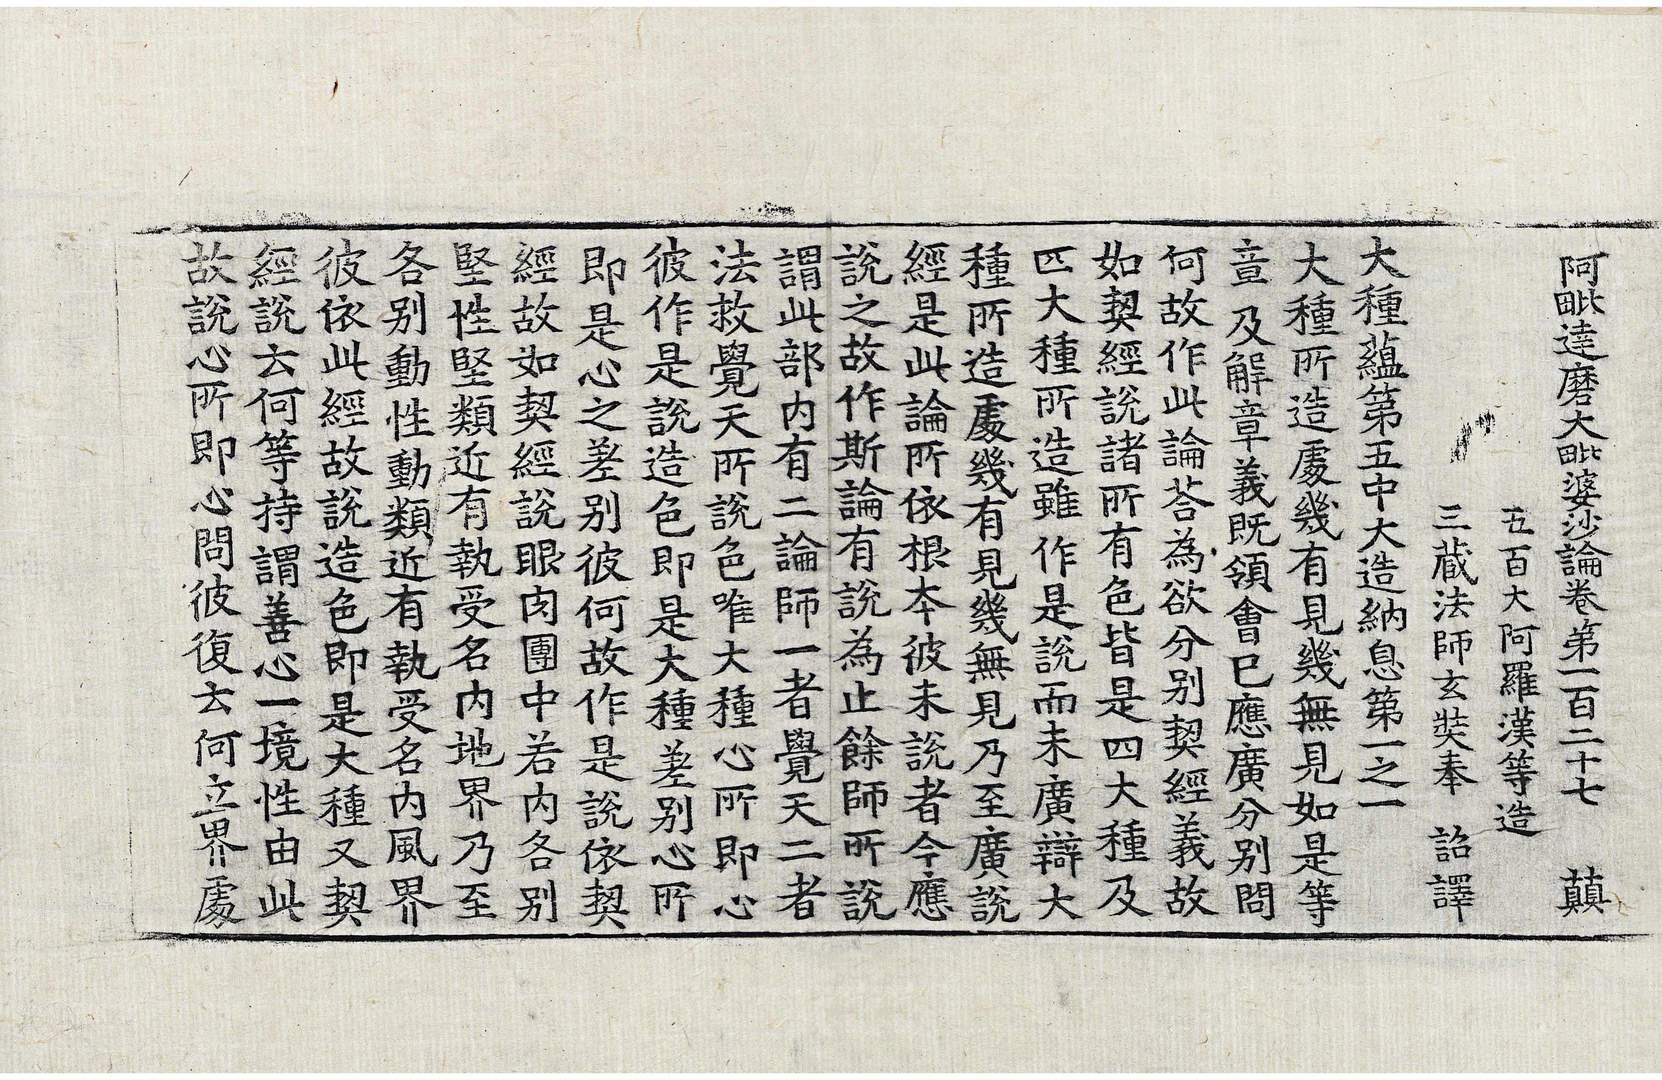 阿毗達磨大毗婆沙論卷第一百二十七　蘋
五百大阿羅漢等造
三蔵法師玄奘奉　詔譯
大種蘊第五中大造納息第一之一
大種所造處幾有見幾無見如是等
章及解章義既領會已應廣分别問
何故作此論荅為欲分别契經義故
如契經說諸所有色皆是四大種及
四大種所造雖作是說而未廣辯大
種所造處幾有見幾無見乃至廣說
經是此論所依根本彼未說者今應
說之故作斯論有說為止餘師所說
謂此部内有二論師一者覺天二者
法救覺天所說色唯大種心所即心
彼作是說造色即是大種差别心所
即是心之差别彼何故作是說依契
經故如契經說眼肉團中若内各别
堅性堅類近有執受名内地界乃至
各别動性動類近有執受名内風界
彼依此經故說造色即是大種又契
經說云何等持謂善心一境性由此
故說心所即心問彼復云何立界處